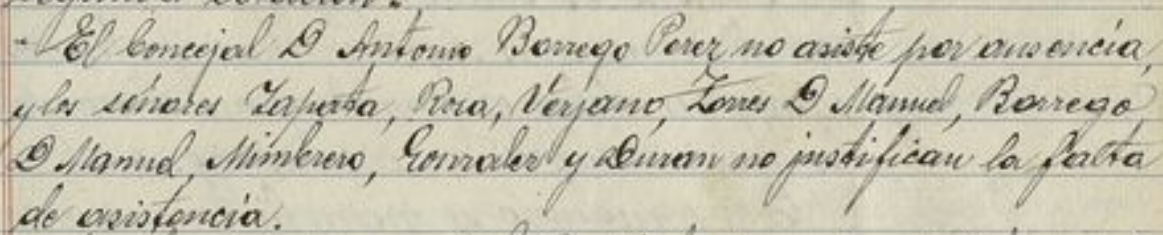 - El Concejal D Antonio Borrego Perez no asiste por ausencia,
y los señores Zapata, Rosa, Verjano, Torres D Manuel, Borrego
D Manuel, Mimbrero, Gonzalez y Duran no justifican la falta
de asistencia.